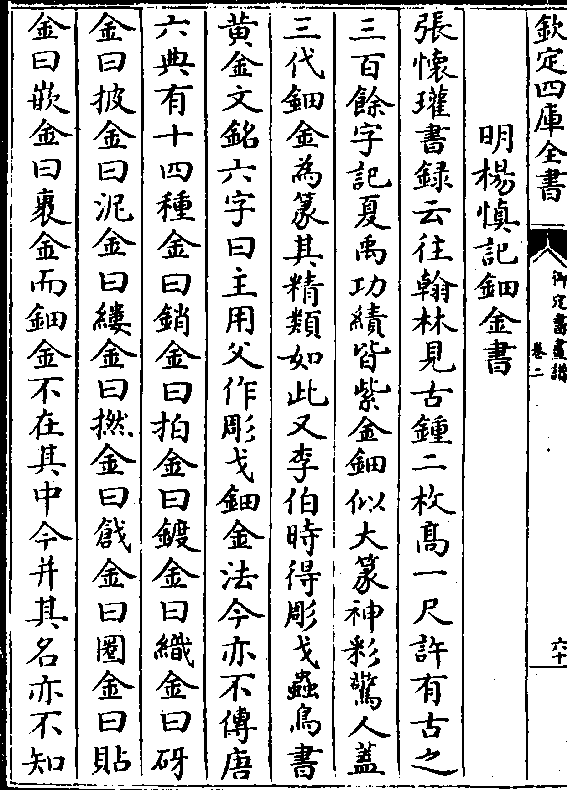 欽定四庫全書
御定書畫譜
卷二
六十
明楊慎記鈿金書
張懷瓘書録云往翰林見古鍾二枚髙一尺許有古文
三百餘字記夏禹功績皆紫金鈿似大篆神彩驚人蓋
三代鈿金為篆其精類如此又李伯時得彫戈蟲鳥書
黄金文銘六字曰主用父作彫戈鈿金法今亦不傳唐
六典有十四種金曰銷金曰拍金曰鍍金曰織金曰砑
金曰披金曰泥金曰縷金曰撚金曰戧金曰圏金曰貼
金曰嵌金曰裹金而鈿金不在其中今并其名亦不知